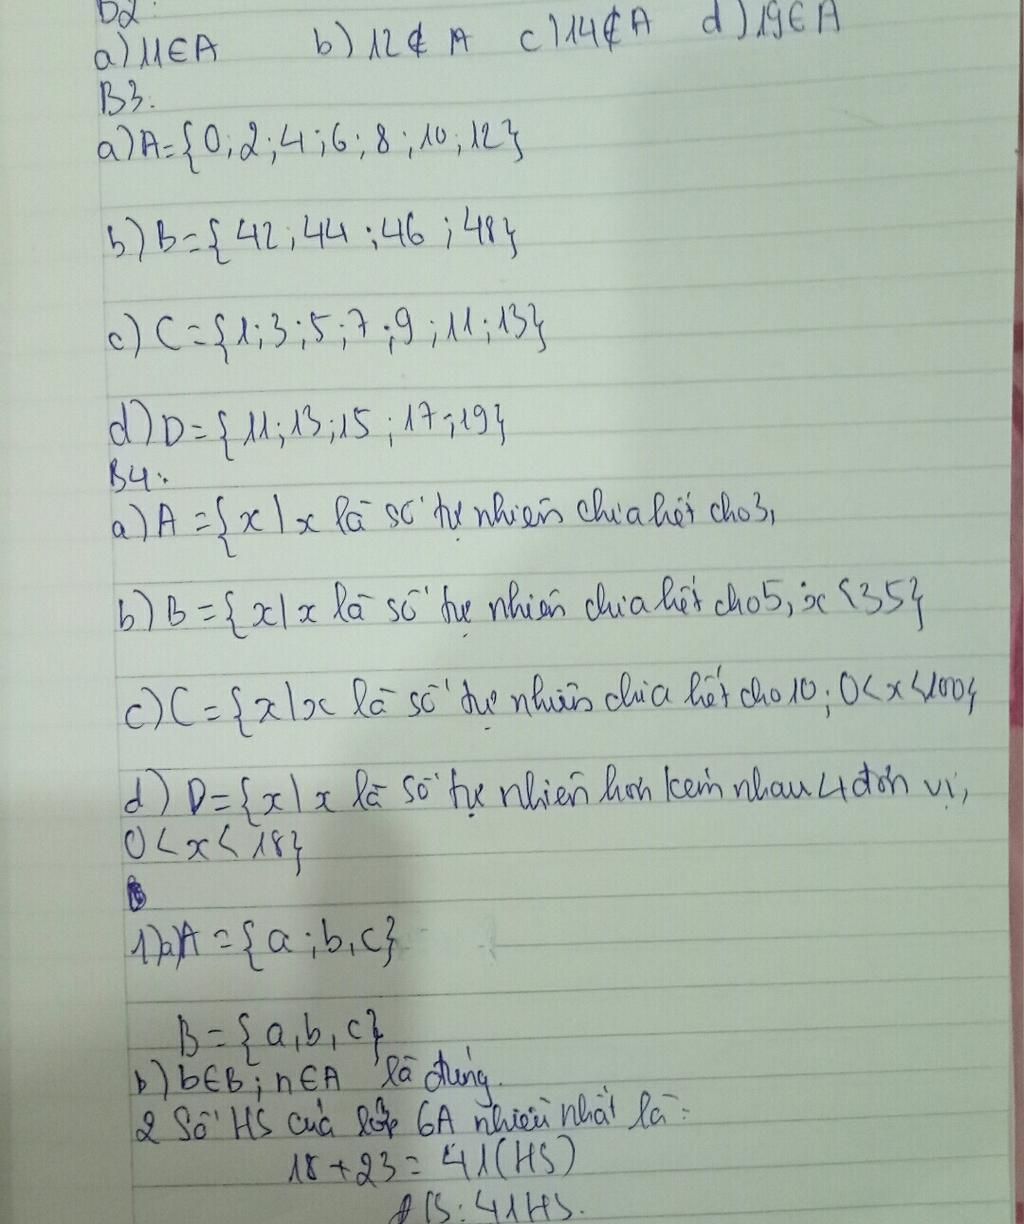 B2:
a) 11∈A b) 12∉A c) 14∉A d) 19∈A
B3.
a) A={0;2;4;6;8;10;12}
b) B={42;44;46;48}
c) C={1;3;5;7;9;11;13}
d) D={11;13;15;17;19}
B4:
a) A={x|x là số tự nhiên chia hết cho 3,
b) B={x|x là số tự nhiên chia hết cho 5, x<35}
c) C={x|x là số tự nhiên chia hết cho 10; 0<x<100}
d) D={x|x là số tự nhiên hơn kém nhau 4 đơn vị,
0<x<18}
1) a) A={a;b,c}
B={a,b,c}
b) b∈B; n∈A là đúng.
2 Số HS của lớp 6A nhiều nhất là:
18+23=41(HS)
ĐS: 41HS.